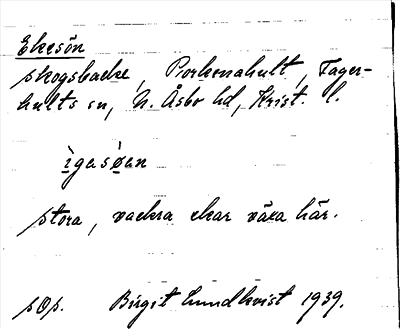 Ekesön
skogsbacke, Porkenahult, Fager-
hults sn, N. Åsbo hd, Krist. l.
ìgasǿan
stora, vackra ekar växa här.
sOp. Birgit Lundkvist 1939.